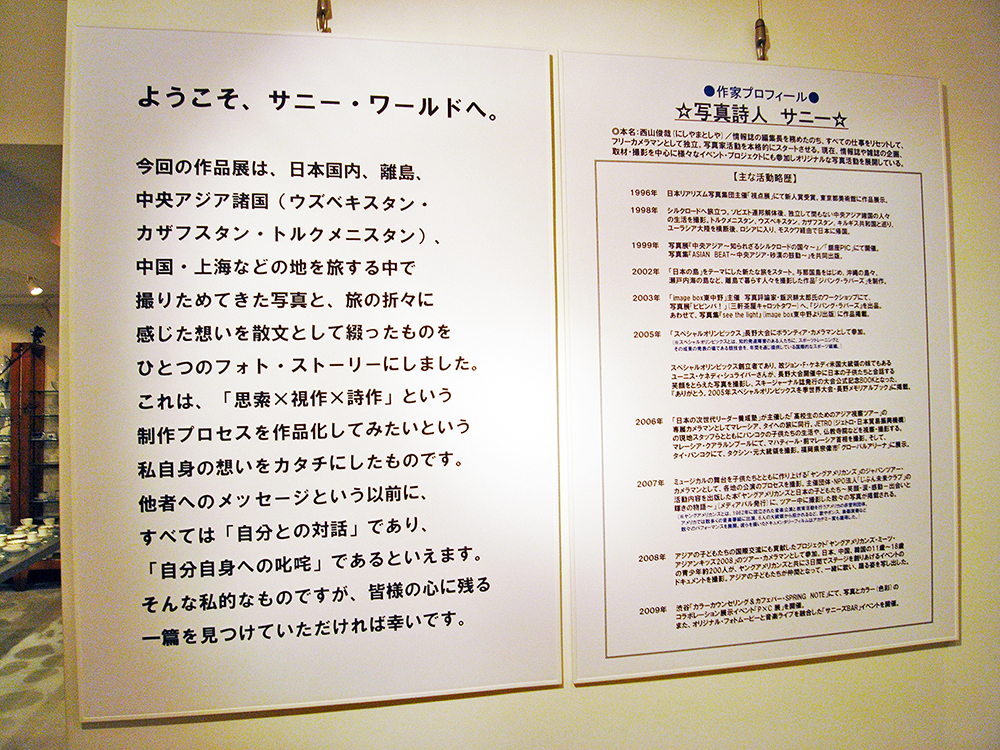 ようこそ、サニー・ワールドへ。
今回の作品展は、日本国内、離島、
中央アジア諸国（ウズベキスタン・
カザフスタン・トルクメニスタン）、
中国・上海などの地を旅する中で
撮りためてきた写真と、旅の折々に
感じた想いを散文として綴ったものを
ひとつのフォト・ストーリーにしました。
これは、「思索×視作×詩作」という
制作プロセスを作品化してみたいという
私自身の想いをカタチにしたものです。
他者へのメッセージという以前に、
すべては「自分との対話」であり、
「自分自身への叱咤」であるといえます。
そんな私的なものですが、皆様の心に残る
一篇を見つけていただければ幸いです。
●作家プロフィール●
☆写真詩人 サニー☆
◎本名：西山俊哉（にしやまとしや）／情報誌の編集長を務めたのち、すべての仕事をリセットして、
フリーカメラマンとして独立。写真家活動を本格的にスタートさせる。現在、情報誌や雑誌の企画、
取材・撮影を中心に様々なイベント・プロジェクトにも参加しオリジナルな写真活動を展開している。
【主な活動略歴】
1996年 日本リアリズム写真集団主催「視点展」にて新人賞受賞。東京都美術館に作品展示。
1998年 シルクロードへ旅立つ。ソビエト連邦解体後、独立して間もない中央アジア諸国の人々
の生活を撮影。トルクメニスタン、ウズベキスタン、カザフスタン、キルギス共和国と巡り、
ユーラシア大陸を横断後、ロシアに入り、モスクワ経由で日本に帰国。
1999年 写真展「中央アジア～知られざるシルクロードの国々～」／「銀座PIC」にて開催。
写真集「ASIAN BEAT～中央アジア・砂漠の鼓動～」を共同出版。
2002年 「日本の島」をテーマにした新たな旅をスタート。与那国島をはじめ、沖縄の島々、
瀬戸内海の島など、離島で暮らす人々を撮影した作品「ジパング・ラバーズ」を制作。
2003年 「image box東中野」主催 写真評論家・飯沢耕太郎氏のワークショップにて、
写真展「ビビンバ！」（三軒茶屋キャロットタワー）へ、「ジパング・ラバーズ」を出品。
あわせて、写真集「see the light」（image box東中野より出版）に作品掲載。
2005年 「スペシャルオリンピックス」長野大会にボランティア・カメラマンとして参加。
（※スペシャルオリンピックスとは、知的発達障害のある人たちに、スポーツトレーニングと
その成果の発表の場である競技会を、年間を通じ提供している国際的なスポーツ組織。）
スペシャルオリンピックス創立者であり、故ジョン・F・ケネディ米国大統領の妹でもある
ユーニス・ケネディ・シュライバーさんが、長野大会開催中に日本の子供たちと会話する
笑顔をとらえた写真を撮影し、スキージャーナル誌発行の大会公式記念BOOKとなった、
「ありがとう、2005年スペシャルオリンピックス冬季世界大会・長野メモリアルブック」に掲載。
2006年 「日本の次世代リーダー養成塾」が主催した「高校生のためのアジア視察ツアー」の
専属カメラマンとしてマレーシア、タイへの旅に同行。JETRO（ジェトロ・日本貿易振興機構）
の現地スタッフらとともにバンコクの子供たちの生活や、仏教寺院などを視察・撮影する。
マレーシア・クアラルンプールにて、マハティール・前マレーシア首相を撮影。そして、
タイ・バンコクにて、タクシン・元大統領を撮影。福岡県宗像市「グローバルアリーナ」に展示。
2007年 ミュージカルの舞台を子供たちとともに作り上げる「ヤングアメリカンズ」のジャパンツアー・
カメラマンとして、各地の公演のプロセスを撮影。主催団体・NPO法人「じぶん未来クラブ」の
活動内容を出版した本「ヤングアメリカンズと日本の子どもたち～笑顔・涙・感動－出会いと
輝きの物語～」（メディアパル発行）に、ツアー中に撮影した数々の写真が掲載される。
2008年 アジアの子どもたちの国際交流にも貢献したプロジェクト「ヤングアメリカンズ・ミーツ・
アジアンキッズ2008」のツアー・カメラマンとして参加。日本、中国、韓国の11歳～18歳
の青少年約200人が、ヤングアメリカンズと共に3日間でステージを創りあげるイベントの
ドキュメントを撮影。アジアの子どもたちが仲間となって、一緒に歌い、踊る姿を写し出した。
2009年 渋谷「カラーカウンセリング＆カフェバー・SPRING NOTE」にて、写真とカラー（色彩）の
コラボレーション展示イベント「P×C 展」を開催。
また、オリジナル・フォトムービーと音楽ライブを融合した「サニーズBAR」イベントを開催。